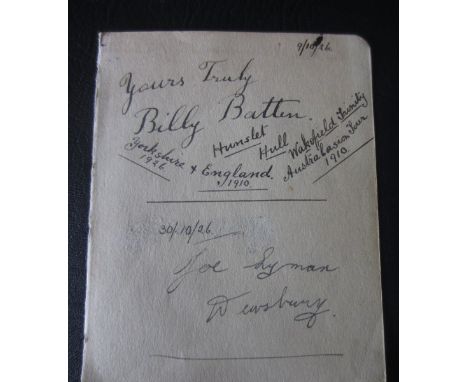 9/10/26.
Yours Truly
Billy Batten.
Hunslet Hull Wakefield Trinity
Yorkshire & England. Australasian Tour
1926 1910. 1910.
30/10/26.
Joe Lyman
Dewsbury.